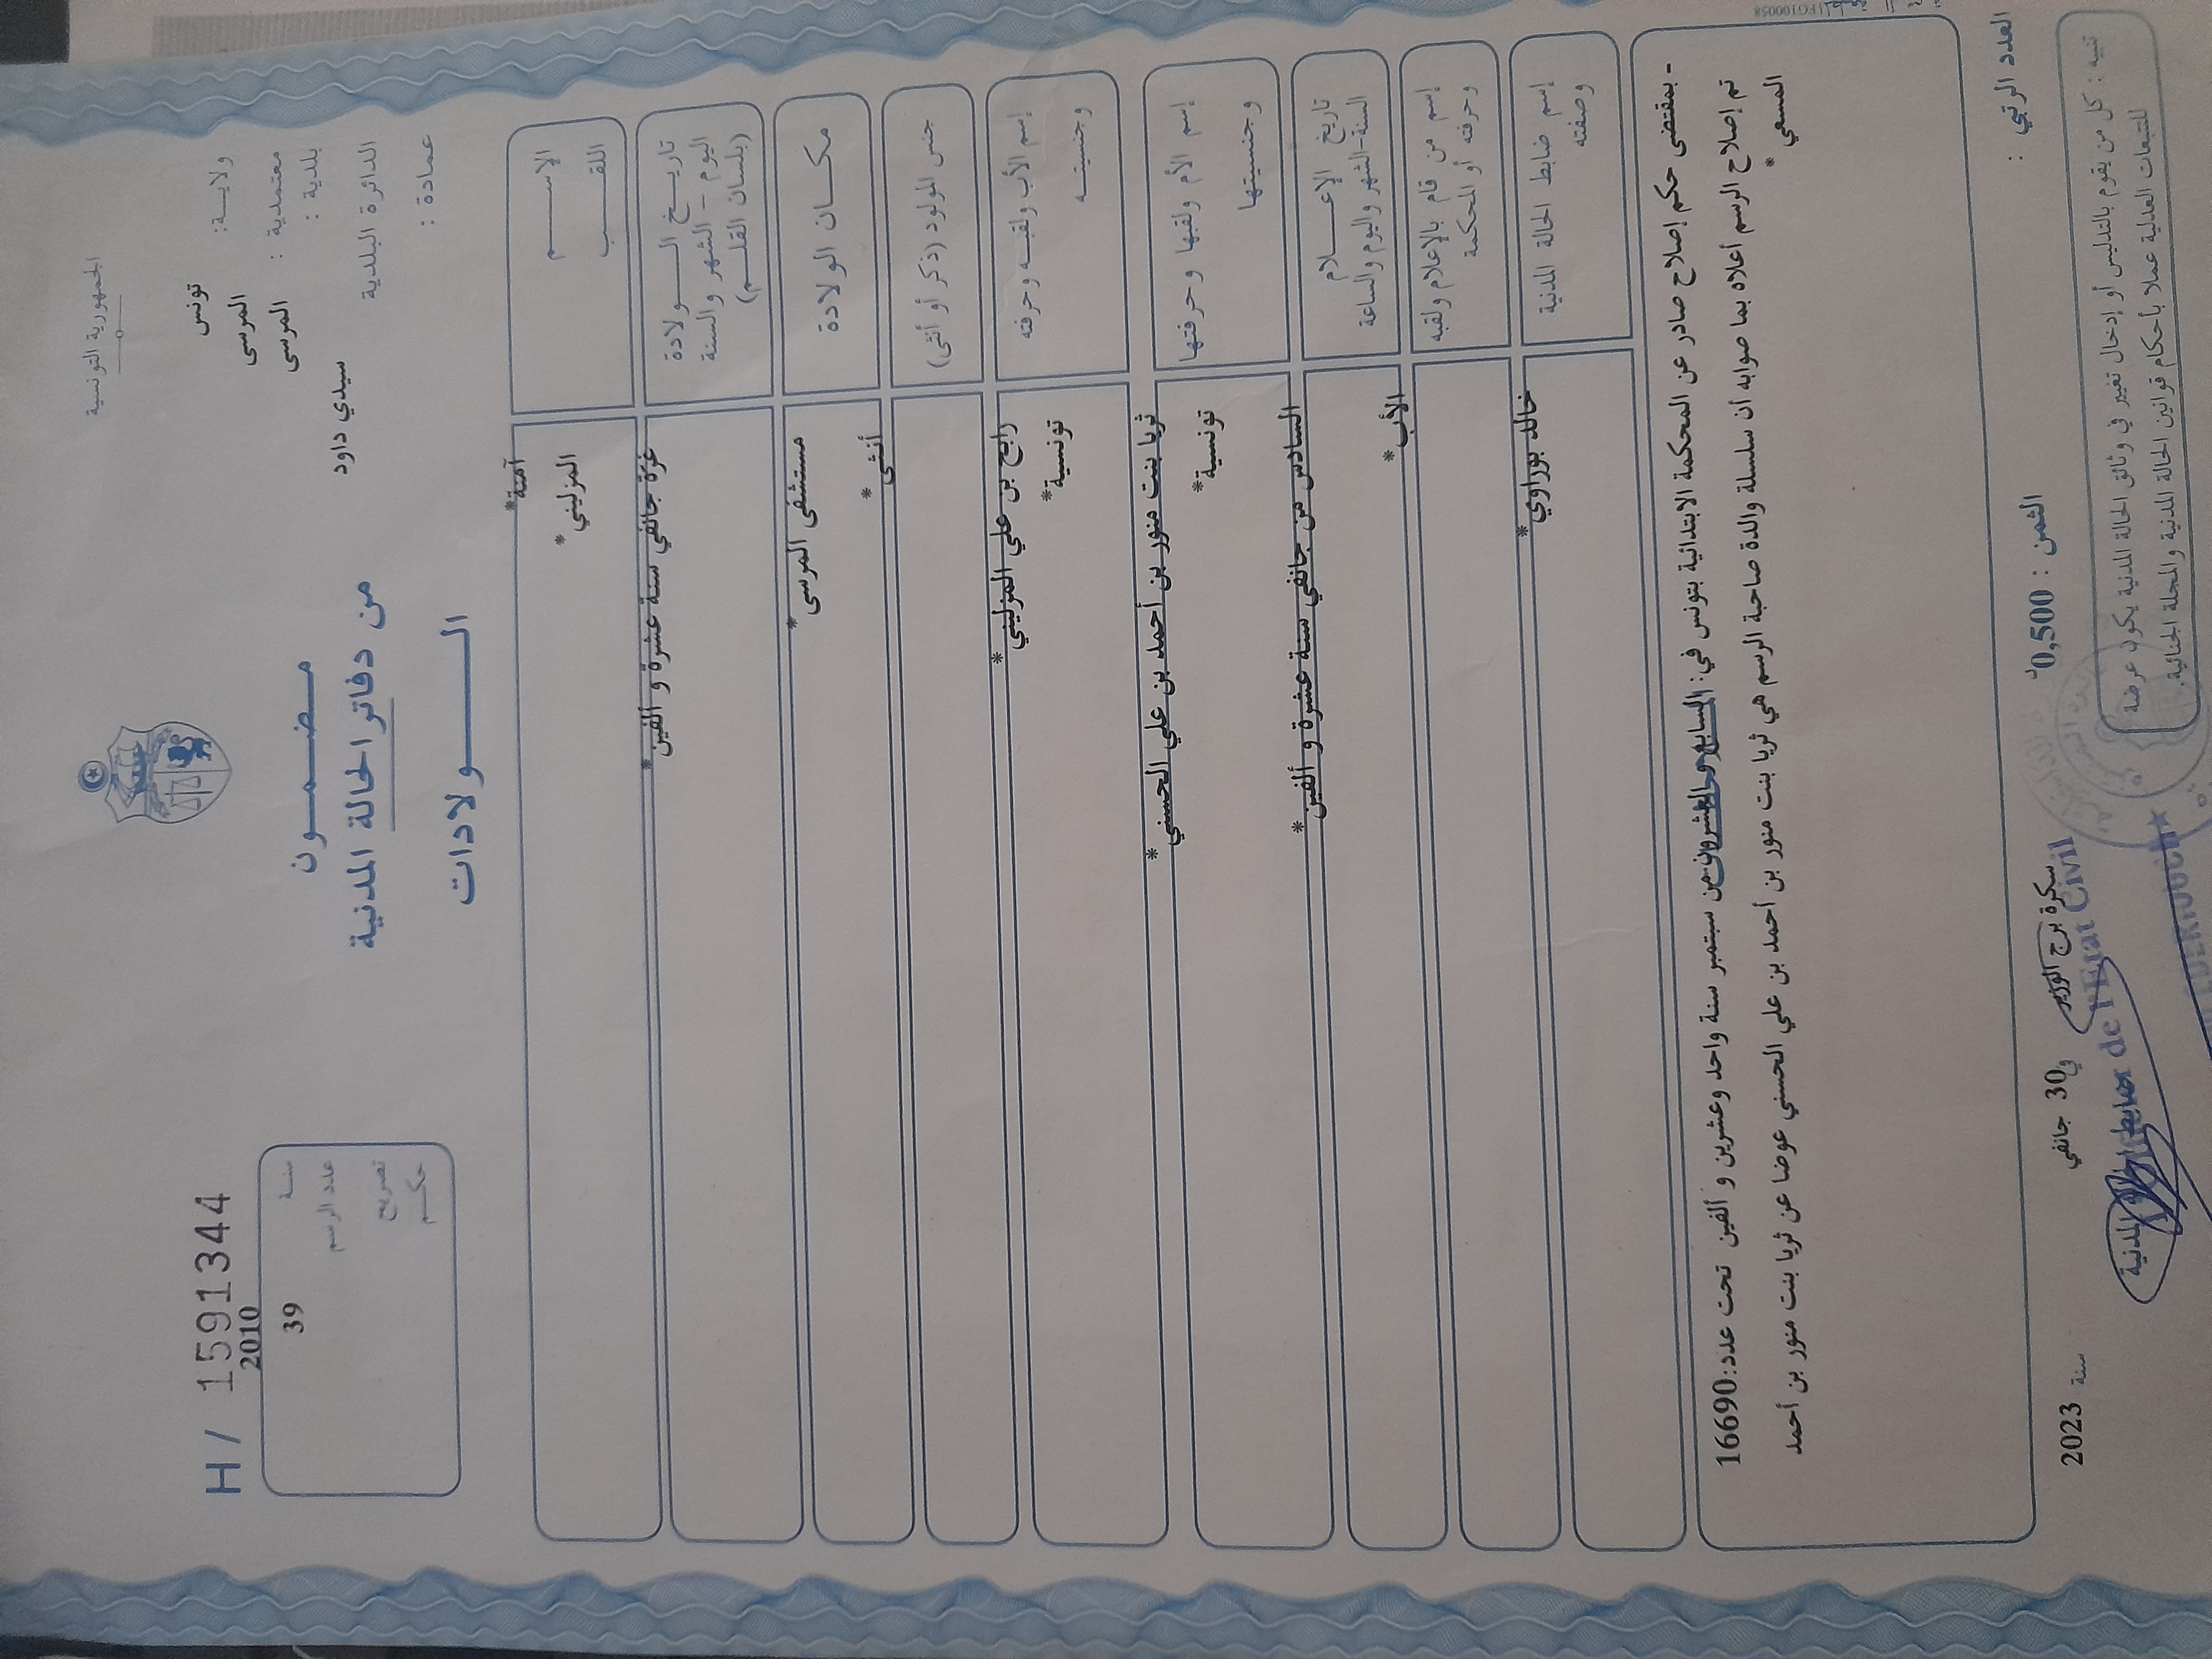 الجمهورية التونسية
ولايـة: تونس
معتمدية : المرسى
بلدية : المرسى
الدائرة البلدية سيدي داود
عمادة :
H / 1591344
سنة 2010
عدد الرسم 39
تصريح
حكم
مضمون
من دفاتر الحالة المدنية
الولادات
الإسم آمنة*
اللقب المزليني*
تاريخ الولادة غرة جانفي سنة عشرة و ألفين*
اليوم - الشهر والسنة
(بلسان القلم)
مكان الولادة مستشفى المرسى*
جنس المولود (ذكر أو أنثى) أنثى*
إسم الأب ولقبه وحرفته رابح بن علي المزليني*
وجنسيته تونسية*
إسم الأم ولقبها وحرفتها ثريا بنت منور بن أحمد بن علي الحسني*
وجنسيتها تونسية*
تاريخ الإعلام السادس من جانفي سنة عشرة و ألفين*
السنة-الشهر واليوم والساعة
إسم من قام بالإعلام ولقبه الأب*
وحرفته أو المحكمة
إسم ضابط الحالة المدنية خالد بوراوي*
وصفته
- بمقتضى حكم إصلاح صادر عن المحكمة الابتدائية بتونس في: السابع والعشرون من سبتمبر سنة واحد وعشرين و ألفين تحت عدد:16690
تم إصلاح الرسم أعلاه بما صوابه أن سلسلة والدة صاحبة الرسم هي ثريا بنت منور بن أحمد بن علي الحسني عوضا عن ثريا بنت منور بن أحمد
المسعي*
العدد الرتبي :
الثمن : 0,500د
سكرة برج الوزير في 30 جانفي سنة 2023
تنبيه : كل من يقوم بالتدليس أو إدخال تغيير في وثائق الحالة المدنية يكون عرضة
للتتبعات العدلية عملا بأحكام قوانين الحالة المدنية والمجلة الجنائية.
ضابط الحالة المدنية
de l'Etat Civil